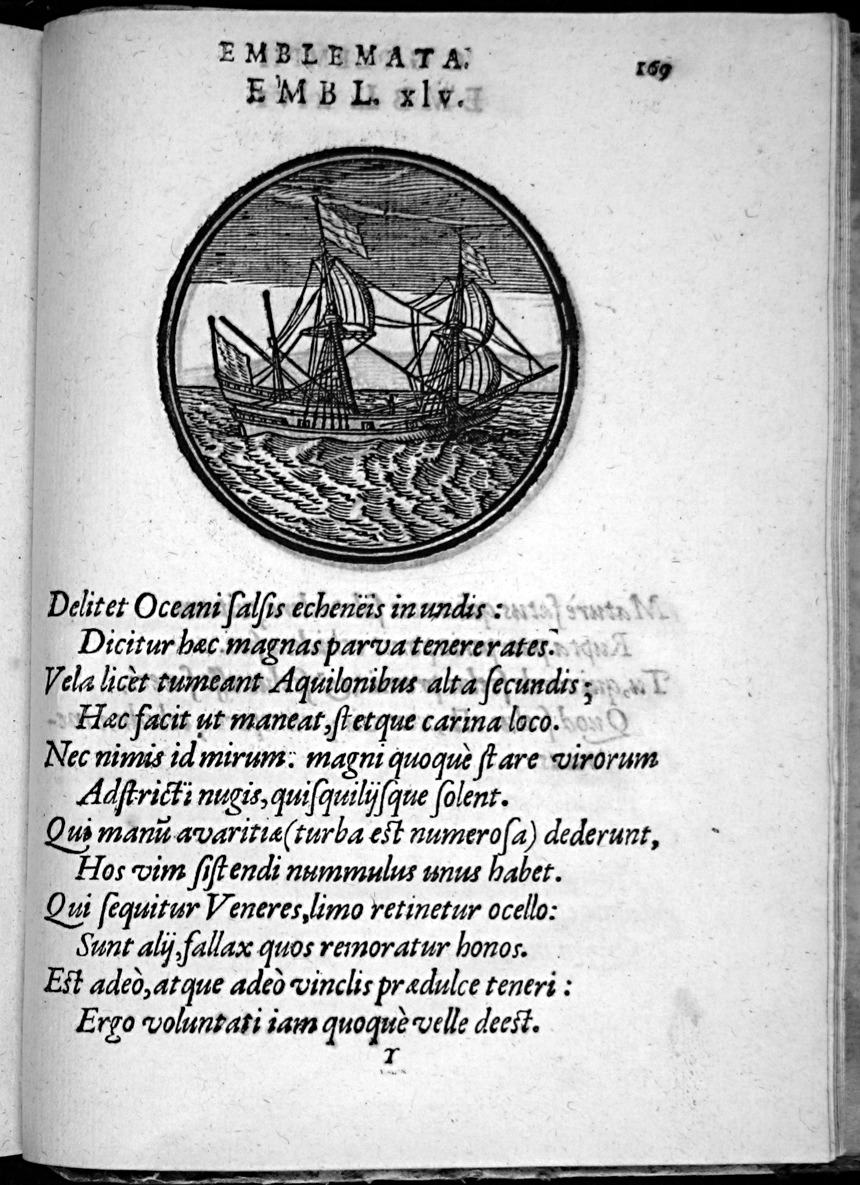 EMBLEMATA.
169
EMBL. xlv.
Delitet Oceani ſalſis echenëis in undis :
Dicitur hæc magnas parva tenere rates.
Vela licèt tumeant Aquilonibus alta ſecundis ;
Hæc facit ut maneat, ſtetque carina loco.
Nec nimis id mirum: magni quoquè ſtare virorum
Adſtricti nugis, quiſquilijſque ſolent.
Qui manũ avaritiæ (turba eſt numeroſa) dederunt,
Hos vim ſiſtendi nummulus unus habet.
Qui ſequitur Veneres, limo retinetur ocello:
Sunt alij, fallax quos remoratur honos.
Eſt adeò, atque adeò vinclis prædulce teneri :
Ergo voluntati iam quoquè velle deeſt.